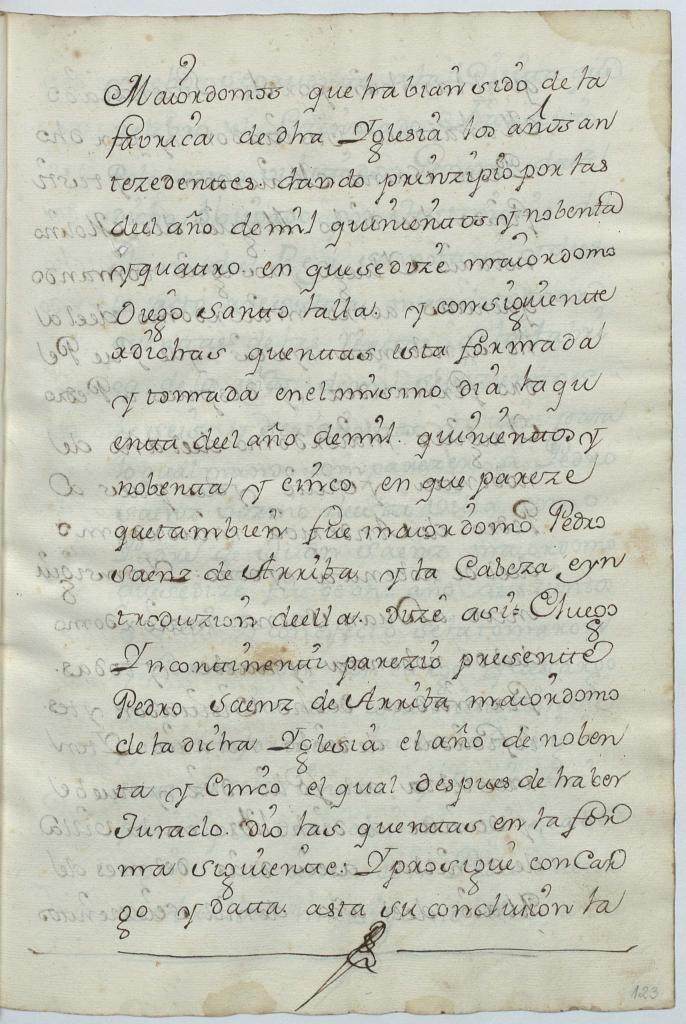 Maiordomos que habian sido de la
fabrica de dha Yglesia los años an
tezedentes. dando prinzipio por las
deel año de mil quinientos y nobenta
y quatro en que se dize maiordomo
Diego Santto talla. y consiguiente
a dichas quenttas esta formada
y tomada en el mismo dia la qu
entta deel año de mil. quinienttos y
nobentta y cinco en que pareze
que tambien fue maiordomo Pedro
Saenz de Arriba y la Cabeza eyn
troduzion deella. dize asi: E luego
Yncontinentti parezio presentte
Pedro Saenz de Arriba maiordomo
de la dicha Yglesia el año de noben
ta y Cinco el qual despues de haber
Jurado. dio las quenttas en la for
ma siguientte: Y prosigue con Car
go y Datta. asta su conclusion la
123